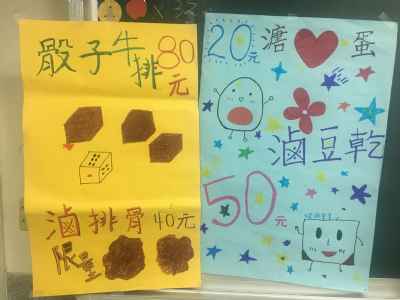 骰子牛排80元
滷排骨40元
限量
20元溏蛋
滷豆乾
50元